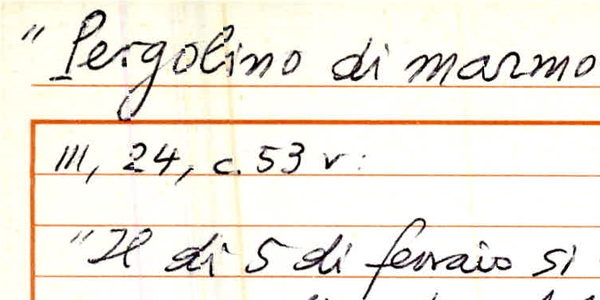 " Pergolino di marmo
III, 24, c. 53 v:
"Il dì 5 di ferraio si